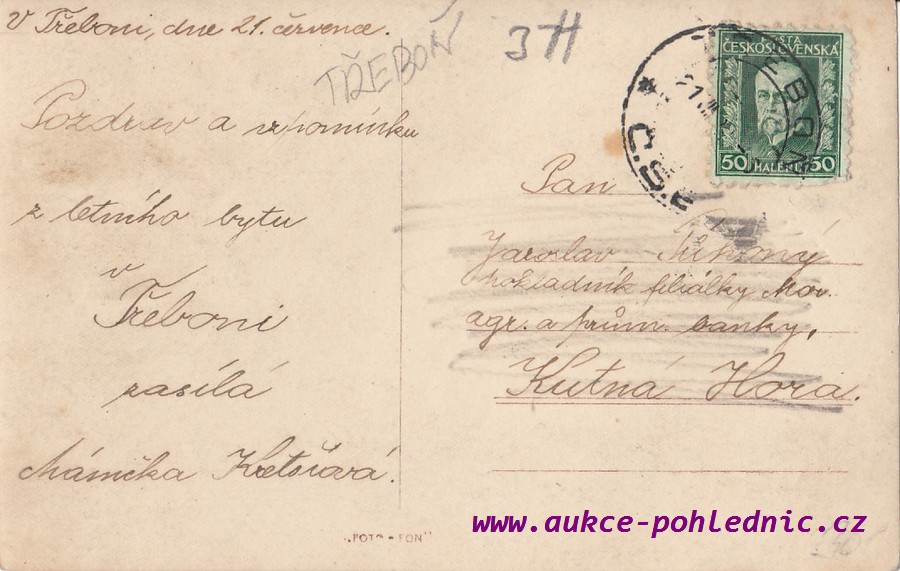 V Třeboni, dne 21. července.
TŘEBOŇ
3H
Pozdrav a vzpomínku
z letního bytu
v
Třeboni
zasílá
Mámčka
POŠTA
ČESKOSLOVENSKÁ
50 HALÉŘŮ 50
Č.S.
Pan
Jaroslav
pokladník filiálky Mor.
agr. a prům. banky,
Kutná Hora.
"FOTO-FON"
www.aukce-pohlednic.cz